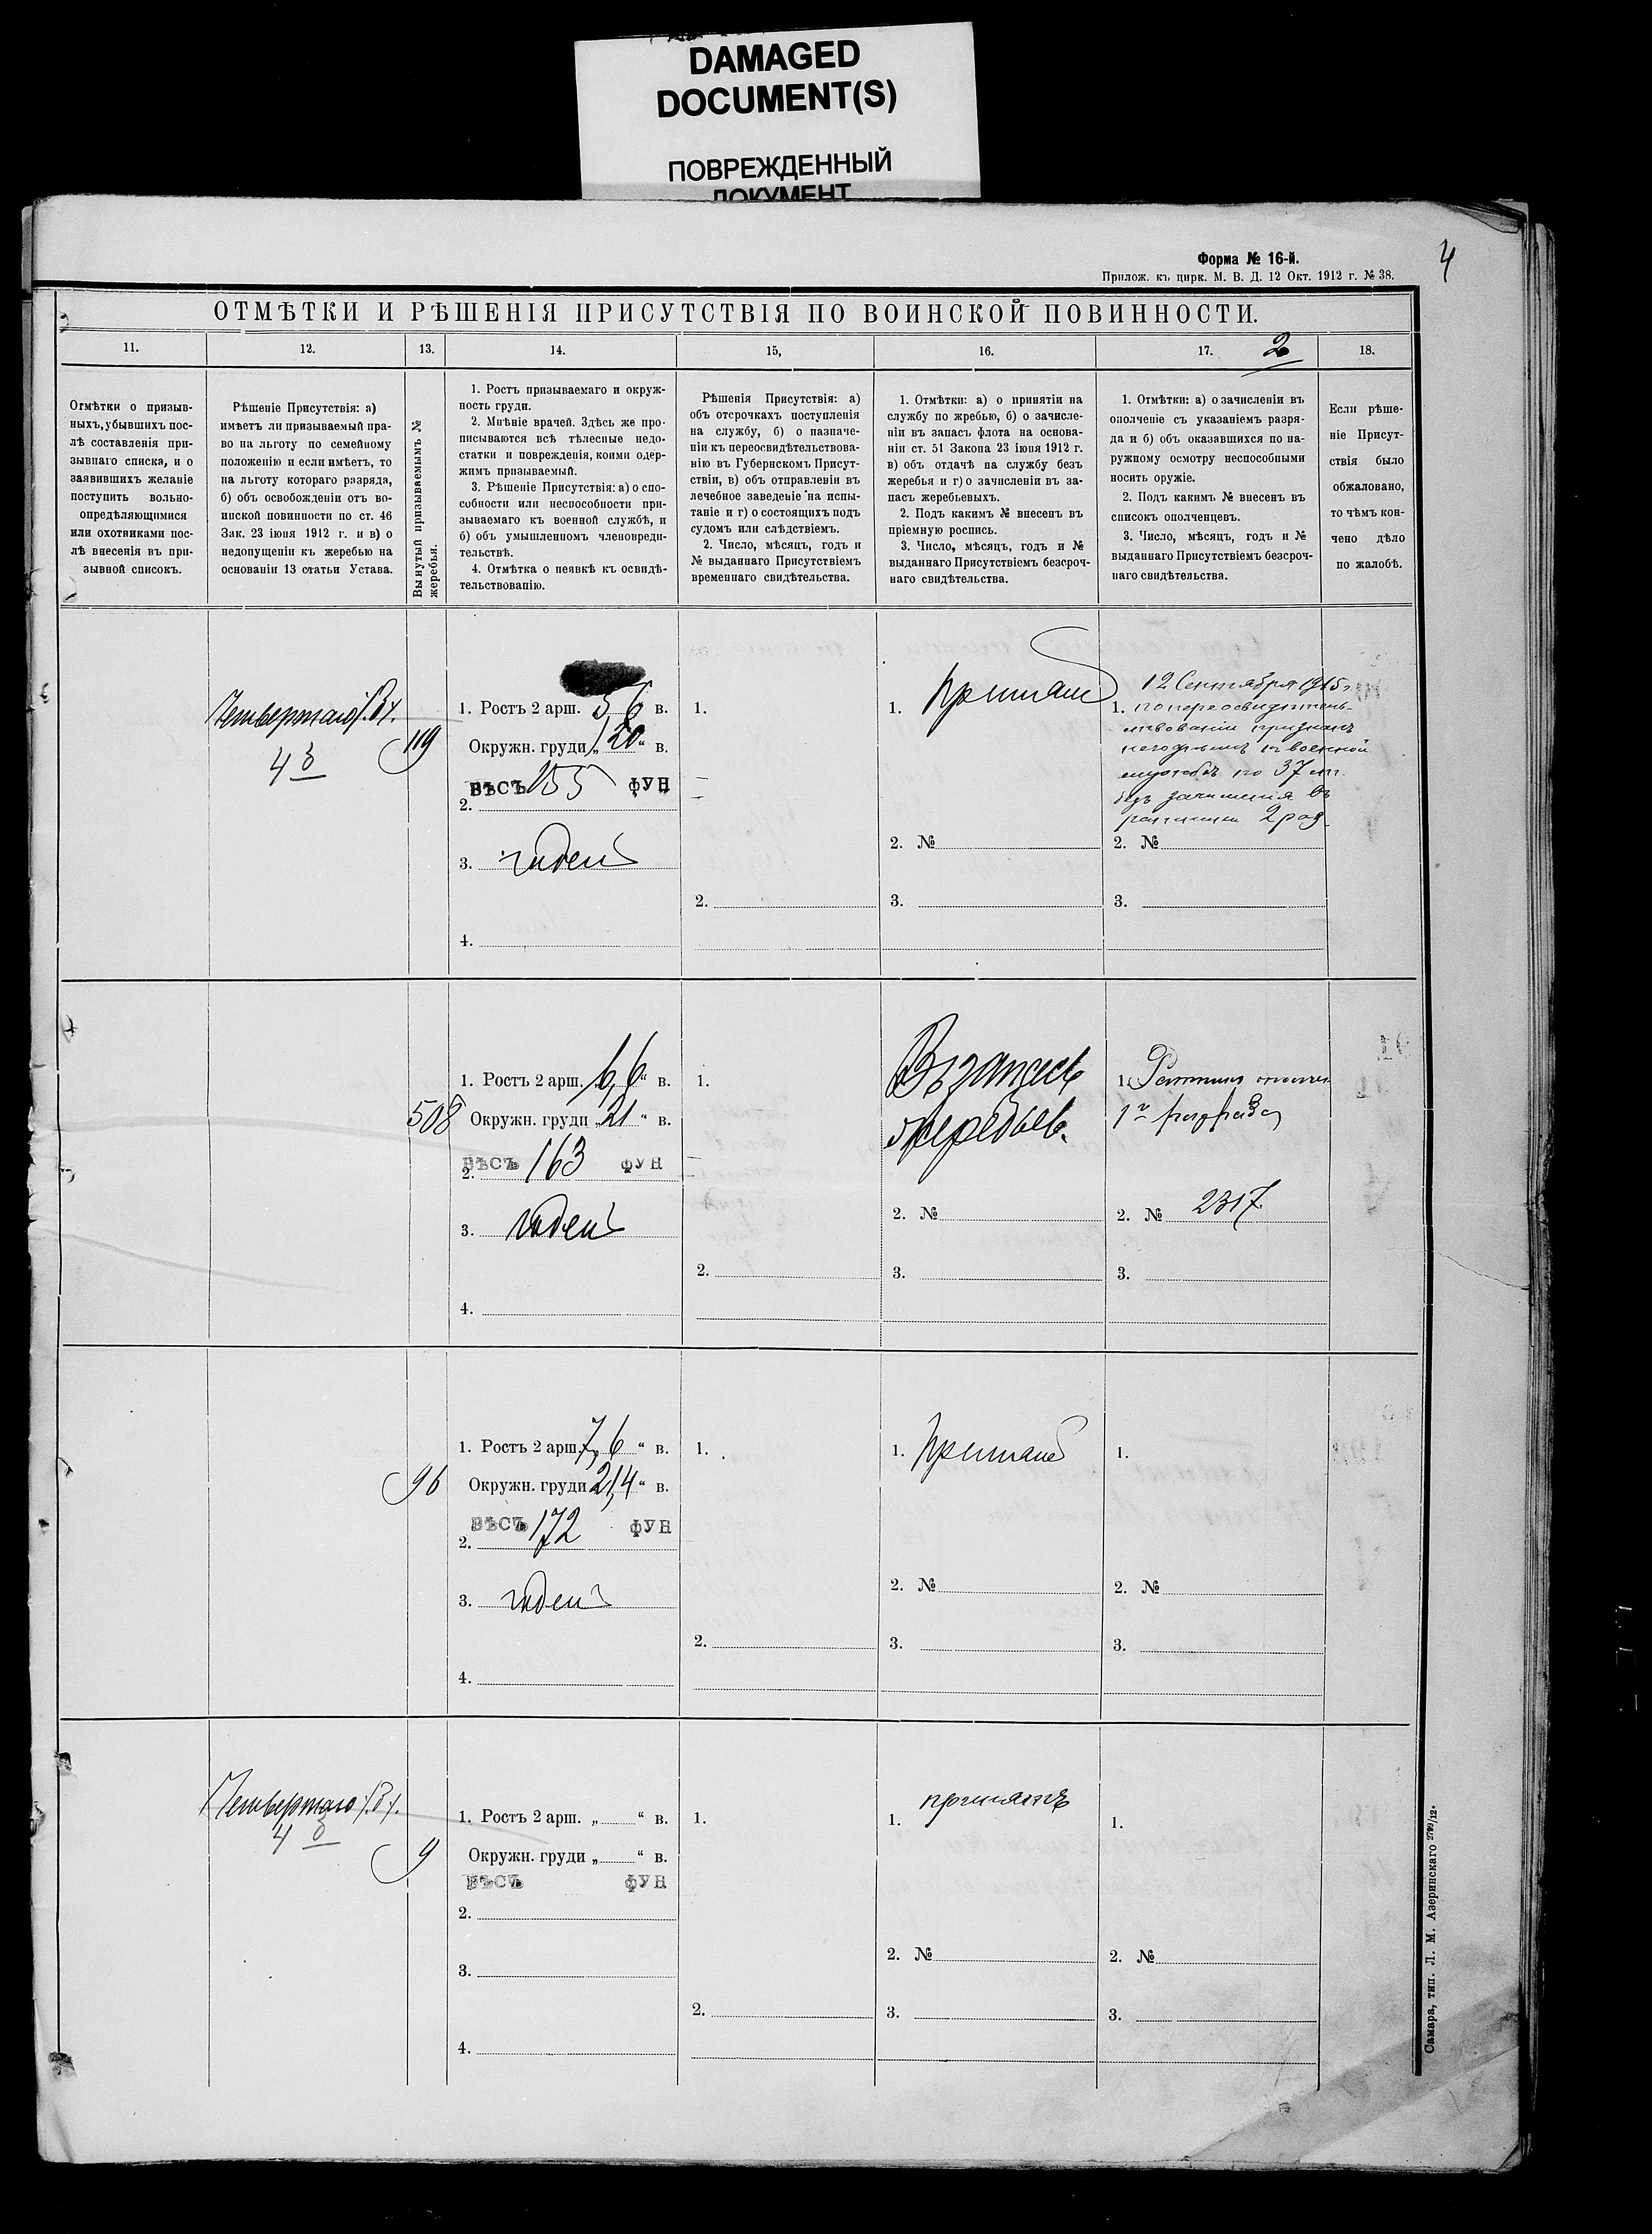 DAMAGED
DOCUMENT(S)
ПОВРЕЖДЕННЫЙ
ДОКУМЕНТ
4
Форма № 16-й.
Прилож. къ цирк. М. В. Д. 12 Окт. 1912 г. № 38.
ОТМѢТКИ И РѢШЕНІЯ ПРИСУТСТВІЯ ПО ВОИНСКОЙ ПОВИННОСТИ.
11.
12.
13.
14.
15,
16.
17.
2
18.
Отмѣтки о призыв-
ныхъ, убывшихъ пос-
лѣ составленія при-
зывнаго списка, и о
заявившихъ желаніе
поступить вольно-
опредѣляющимися
или охотниками пос-
лѣ внесенія въ при-
зывной списокъ.
Рѣшеніе Присутствія: а)
имѣетъ ли призываемый пра-
во на льготу по семейному
положенію и если имѣетъ, то
на льготу котораго разряда,
б) объ освобожденіи отъ во-
инской повинности по ст. 46
Зак. 23 іюня 1912 г. и в) о
недопущеніи къ жеребью на
основаніи 13 статьи Устава.
Вынутый призываемымъ №
жеребья.
1. Ростъ призываемаго и окруж-
ность груди.
2. Мнѣніе врачей. Здѣсь же про-
писываются всѣ тѣлесные недо-
статки и поврежденія, коими одер-
жимъ призываемый.
3. Рѣшеніе Присутствія: а) о спо-
собности или неспособности при-
зываемаго къ военной службѣ, и
б) объ умышленномъ членовреди-
тельствѣ.
4. Отмѣтка о неявкѣ къ освидѣ-
тельствованію.
Рѣшенія Присутствія: а)
объ отсрочкахъ поступленія
на службу, б) о назначе-
ніи къ переосвидѣтельствова-
нію въ Губернскомъ Присут-
ствіи, в) объ отправленіи въ
лечебное заведеніе на испы-
таніе и г) о состоящихъ подъ
судомъ или слѣдствіемъ.
2. Число, мѣсяцъ, годъ и
№ выданнаго Присутствіемъ
временнаго свидѣтельства.
1. Отмѣтки: а) о принятіи на
службу по жребью, б) о зачисле-
ніи въ запасъ флота на основа-
ніи ст. 51 Закона 23 іюня 1912 г.
в) объ отдачѣ на службу безъ
жеребья и г) о зачисленіи въ за-
пасъ жеребьевыхъ.
2. Подъ какимъ № внесенъ въ
пріемную роспись.
3. Число, мѣсяцъ, годъ и №
выданнаго Присутствіемъ безсроч-
наго свидѣтельства.
1. Отмѣтки: а) о зачисленіи въ
ополченіе съ указаніемъ разря-
да и б) объ оказавшихся по на-
ружному осмотру неспособными
носить оружіе.
2. Подъ какимъ № внесенъ въ
списокъ ополченцевъ.
3. Число, мѣсяцъ, годъ и №
выданнаго Присутствіемъ безсроч-
наго свидѣтельства.
Если рѣше-
ніе Присут-
ствія было
обжаловано,
то чѣмъ кон-
чено дѣло
по жалобѣ.
Четвертаго
4
119
1. Ростъ 2 арш. 5 6 в.
Окружн. груди „ 20 “ в.
ВѢСЪ 155 ФУН
2.
3. годенъ
4.
1.
2.
1. Принятъ
2. №
3.
12 Сентября 1915 г.
1. по переосвидѣтель-
ствованіи признанъ
негоднымъ къ военной
службѣ по 37 ст.
безъ зачисленія въ
ратники 2 раз.
2. №
3.
508
1. Ростъ 2 арш. 6,6 “ в.
Окружн. груди „ 21 “ в.
ВѢСЪ 163 ФУН
2.
3. годенъ
4.
1.
2.
Въ запасъ
жеребьев.
2. №
3.
1. Ратникъ ополчен
1го разряда
2. № 2317.
3.
96
1. Ростъ 2 арш. 7,6 “ в.
Окружн. груди 21,4 “ в.
ВѢСЪ 172 ФУН
2.
3. годенъ
4.
1.
2.
1. Принятъ
2. №
3.
1.
2. №
3.
Четвертаго
4
9
1. Ростъ 2 арш. „ “ в.
Окружн. груди „ “ в.
ВѢСЪ ФУН
2.
3.
4.
1.
2.
1. принятъ
2. №
3.
1.
2. №
3.
Самара, тип. Л. М. Азеринскаго